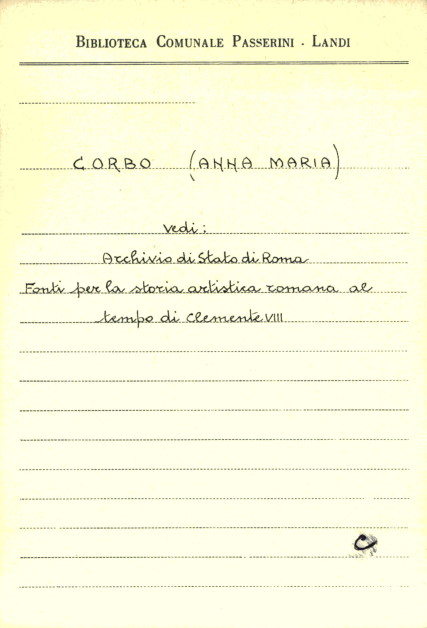 BIBLIOTECA COMUNALE PASSERINI - LANDI
CORBO (ANNA MARIA)
vedi:
Archivio di Stato di Roma
Fonti per la storia artistica romana al
tempo di Clemente VIII
C